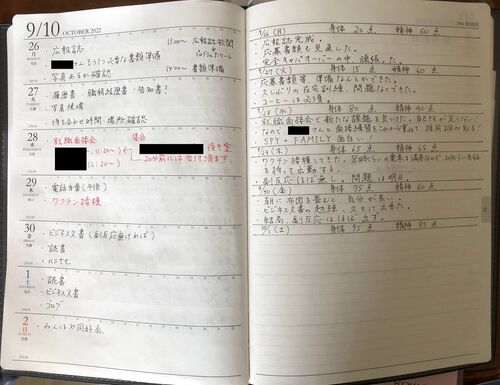 9/10 OCTOBER 2022
26
月
・広報誌
13:00〜 広報誌校閲
プログラムアンケート
・
さんともう1つ必要な書類準備
14:00〜 書類準備
・写真あるか確認
27
火
・履歴書・職務経歴書・告知書!
・写真候補
・待ち合わせ時間・場所確認
28
水
就職面接会
集合
11:20〜
待合室
(12:20〜)
20分前には受付済ます
29
木
・電話当番(午後)
・ワクチン接種
30
金
・ビジネス文書(副反応無ければ)
・読書
・note
1
土
・読書
・ビジネス文書
・ブログ
2
日
・みんはや同好会
9/26 (月) 身体 20 点、精神 60 点
・広報誌完成。
・応募書類も見直した。
・完全キャパオーバーの中、頑張った。
9/27 (火) 身体 15 点 精神 60 点
・応募書類等、準備なんとかできた。
・久しぶりの在宅訓練、問題なくできた。
・コーヒーは必須。
9/28 (水) 身体 80 点 精神 40 点
・就職面接会で新たな課題を見つけた。自己PRが足りない!
なので
さんで面接練習をこれから重ね、採用担当
・SPY×FAMILY面白い
9/29 (木) 身体 65 点 精神 65 点
・ワクチン接種してきた。
を持って出勤する。
・副反応ほぼ無し。問題は明日。
9/30 (金) 身体 95 点 精神 85 点
・朝に布団を畳むと、気分が良い。
・ビジネス文書の勉強、久々に出来た。
・結局、副反応はほぼ出ず。
10/1 (土) 身体 95 点 精神 85 点